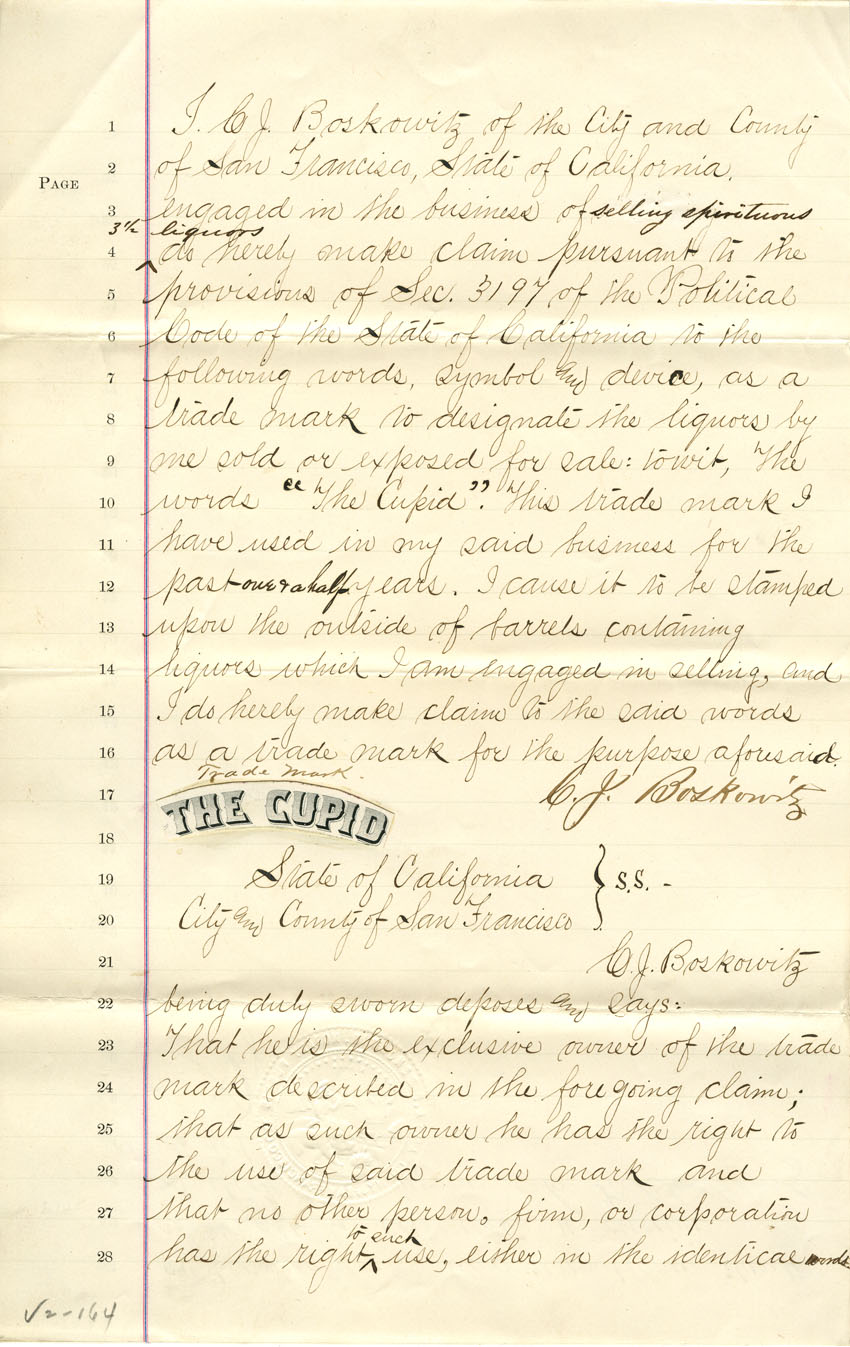 1 I. C J. Boskowitz of the City and County
PAGE
2 of San Francisco, State of California.
3 engaged in the business of selling spirituous
liquors
4 do hereby make claim pursuant to the
5 provisions of Sec. 3197 of the Political
6 Code of the State of California to the
7 following words, symbol and device, as a
8 trade mark to designate the liquors by
9 me sold or exposed for sale: towit, The
10 words "The Cupid". This trade mark I
11 have used in my said business for the
12 past one & a half years. I cause it to be stamped
13 upon the outside of barrels containing
14 liquors which I am engaged in selling, and
15 I do hereby make claim to the said words
16 as a trade mark for the purpose aforesaid.
Trade Mark.
17 C. J. Boskowitz
THE CUPID
18
19 State of California } S.S. -
20 City and County of San Francisco
21 C. J. Boskowitz
22 being duly sworn deposes and says:
23 That he is the exclusive owner of the trade
24 mark described in the foregoing claim;
25 that as such owner he has the right to
26 the use of said trade mark and
27 that no other person, firm, or corporation
to such
28 has the right ^ use, either in the identical words
√2-164